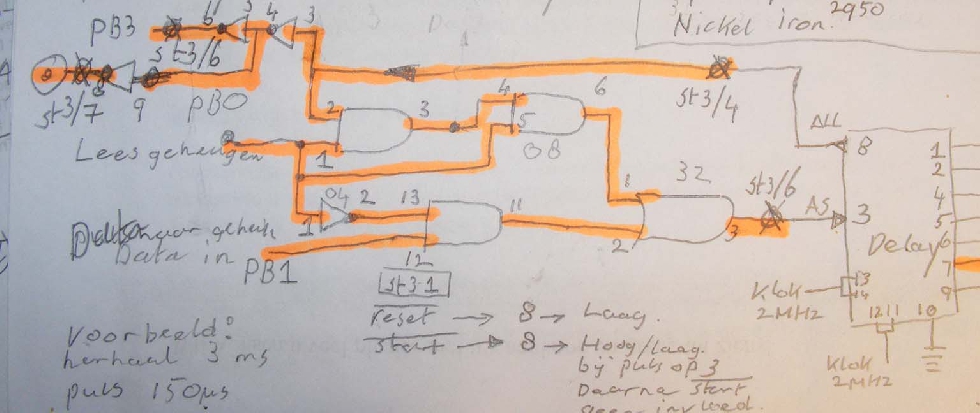 2950
Nickel iron.
PB3
11
6
5
4
3
st3/6
8
9
PB0
st3/7
st3/4
2
3
4
6
5
08
1
Lees geheugen
ALL
8
1
2
4
5
6
7
9
04
1
2
13
11
12
1
32
2
3
st3/6
AS
3
Delay
Data in
PB1
st3-1
Klok
2MHz
13
14
12 11 10
Klok
2MHz
reset → 8 → Laag.
start → 8 → Hoog/Laag.
bij puls op 3
Daarna start
Voorbeeld:
herhaal 3 ms
puls 150µs